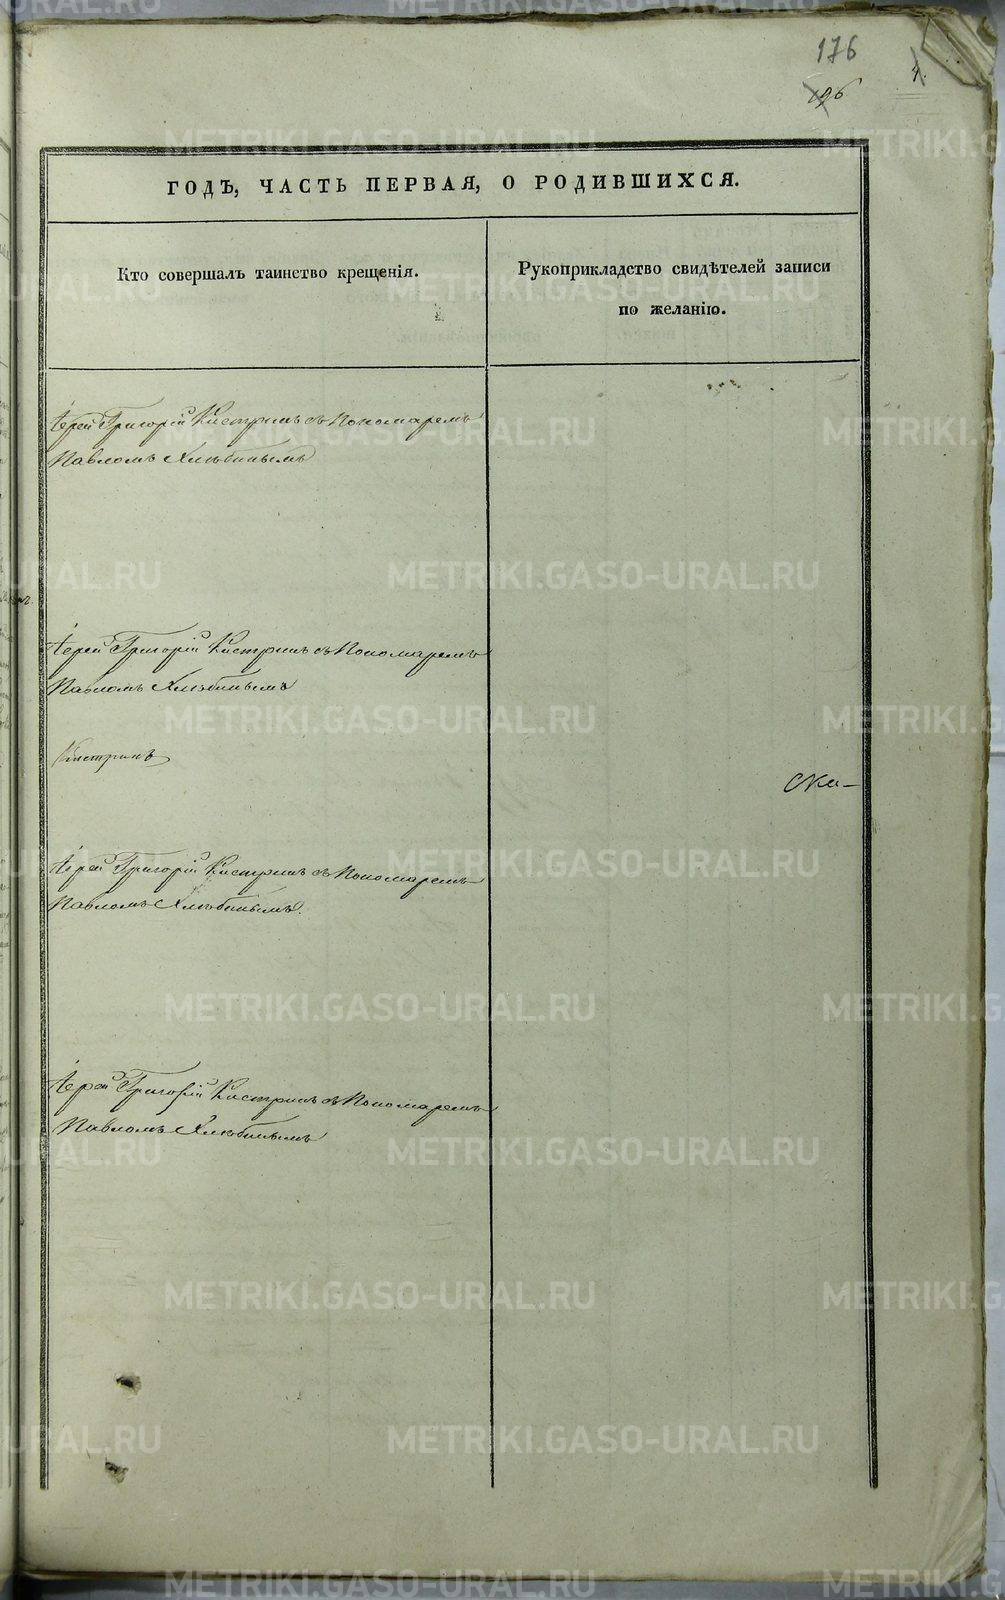 176
196
4.
ГОДЪ, ЧАСТЬ ПЕРВАЯ, О РОДИВШИХСЯ.
Кто совершалъ таинство крещенія.
Рукоприкладство свидѣтелей записи
по желанію.
Іерей Григорій Кистринъ съ Пономаремъ
Павломъ Хлюбинымъ
Іерей Григорій Кистринъ съ Пономаремъ
Павломъ Хлюбинымъ
Кистринъ
Іерей Григорій Кистринъ съ Пономаремъ
Павломъ Хлюбинымъ.
Іерей Григорій Кистринъ съ Пономаремъ
Павломъ Хлюбинымъ
METRIKI.GASO-URAL.RU